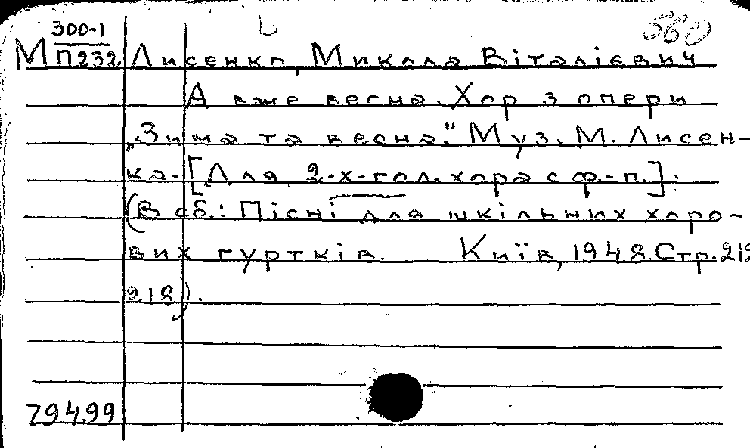 300-1
М П232 Лисенко, Микола Віталієвич
А вже весна. Хор з опери
„Зима та весна." Муз. М. Лисен-
ка. [Для 2-х-гол. хора с ф.-п.].
(В сб.: Пісні для шкільних хоро-
вих гуртків. Київ, 1948. Стр. 212
218).
79499